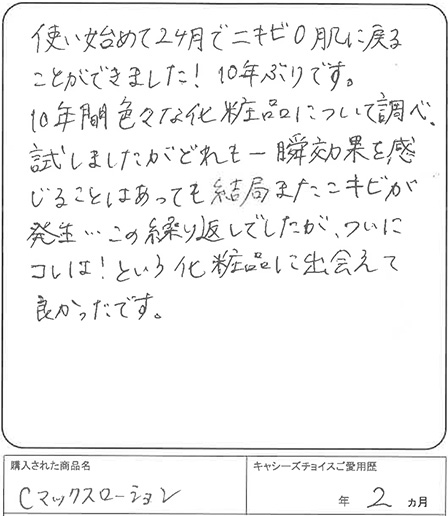 使い始めて2ヶ月でニキビ0肌に戻る
ことができました！10年ぶりです。
10年間色々な化粧品について調べ、
試しましたがどれも一瞬効果を感
じることはあっても結局またニキビが
発生…この繰り返しでしたが、ついに
コレは！という化粧品に出会えて
良かったです。
購入された商品名
キャシーズチョイスご愛用歴
Cマックスローション
年 2 ヵ月